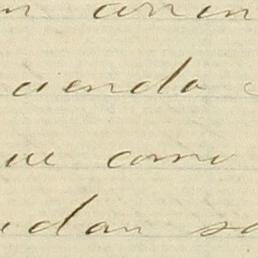 n arren
ciendo
ue como
edan sa